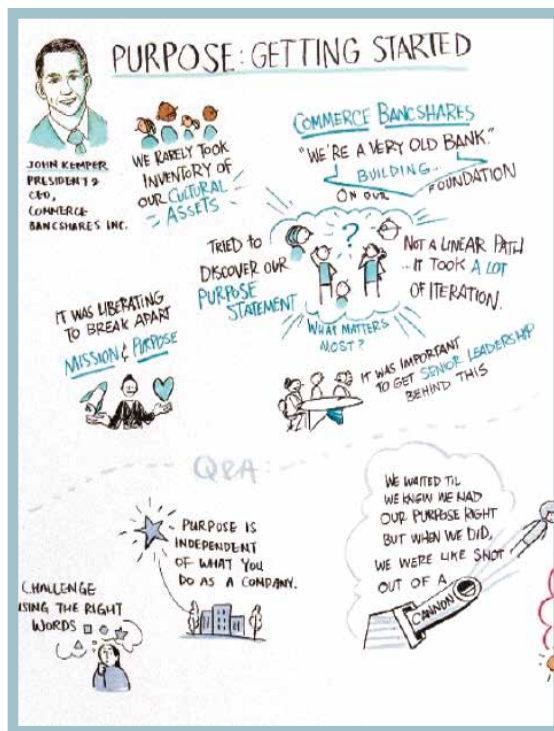 PURPOSE: GETTING STARTED
JOHN KEMPER
PRESIDENT &
CEO,
COMMERCE
BANCSHARES INC.
WE RARELY TOOK
INVENTORY OF
OUR CULTURAL
ASSETS
COMMERCE BANCSHARES
"WE'RE A VERY OLD BANK."
BUILDING...
ON OUR FOUNDATION
TRIED TO
DISCOVER OUR
PURPOSE
STATEMENT
?
WHAT MATTERS
MOST?
NOT A LINEAR PATH
...IT TOOK A LOT
OF ITERATION.
IT WAS LIBERATING
TO BREAK APART
MISSION & PURPOSE
IT WAS IMPORTANT
TO GET SENIOR LEADERSHIP
BEHIND THIS
Q&A:
PURPOSE IS
INDEPENDENT
OF WHAT YOU
DO AS A COMPANY.
CHALLENGE
ISING THE RIGHT
WORDS
WE WAITED TIL
WE KNEW WE HAD
OUR PURPOSE RIGHT
BUT WHEN WE DID,
WE WERE LIKE SHOT
OUT OF A
CANNON